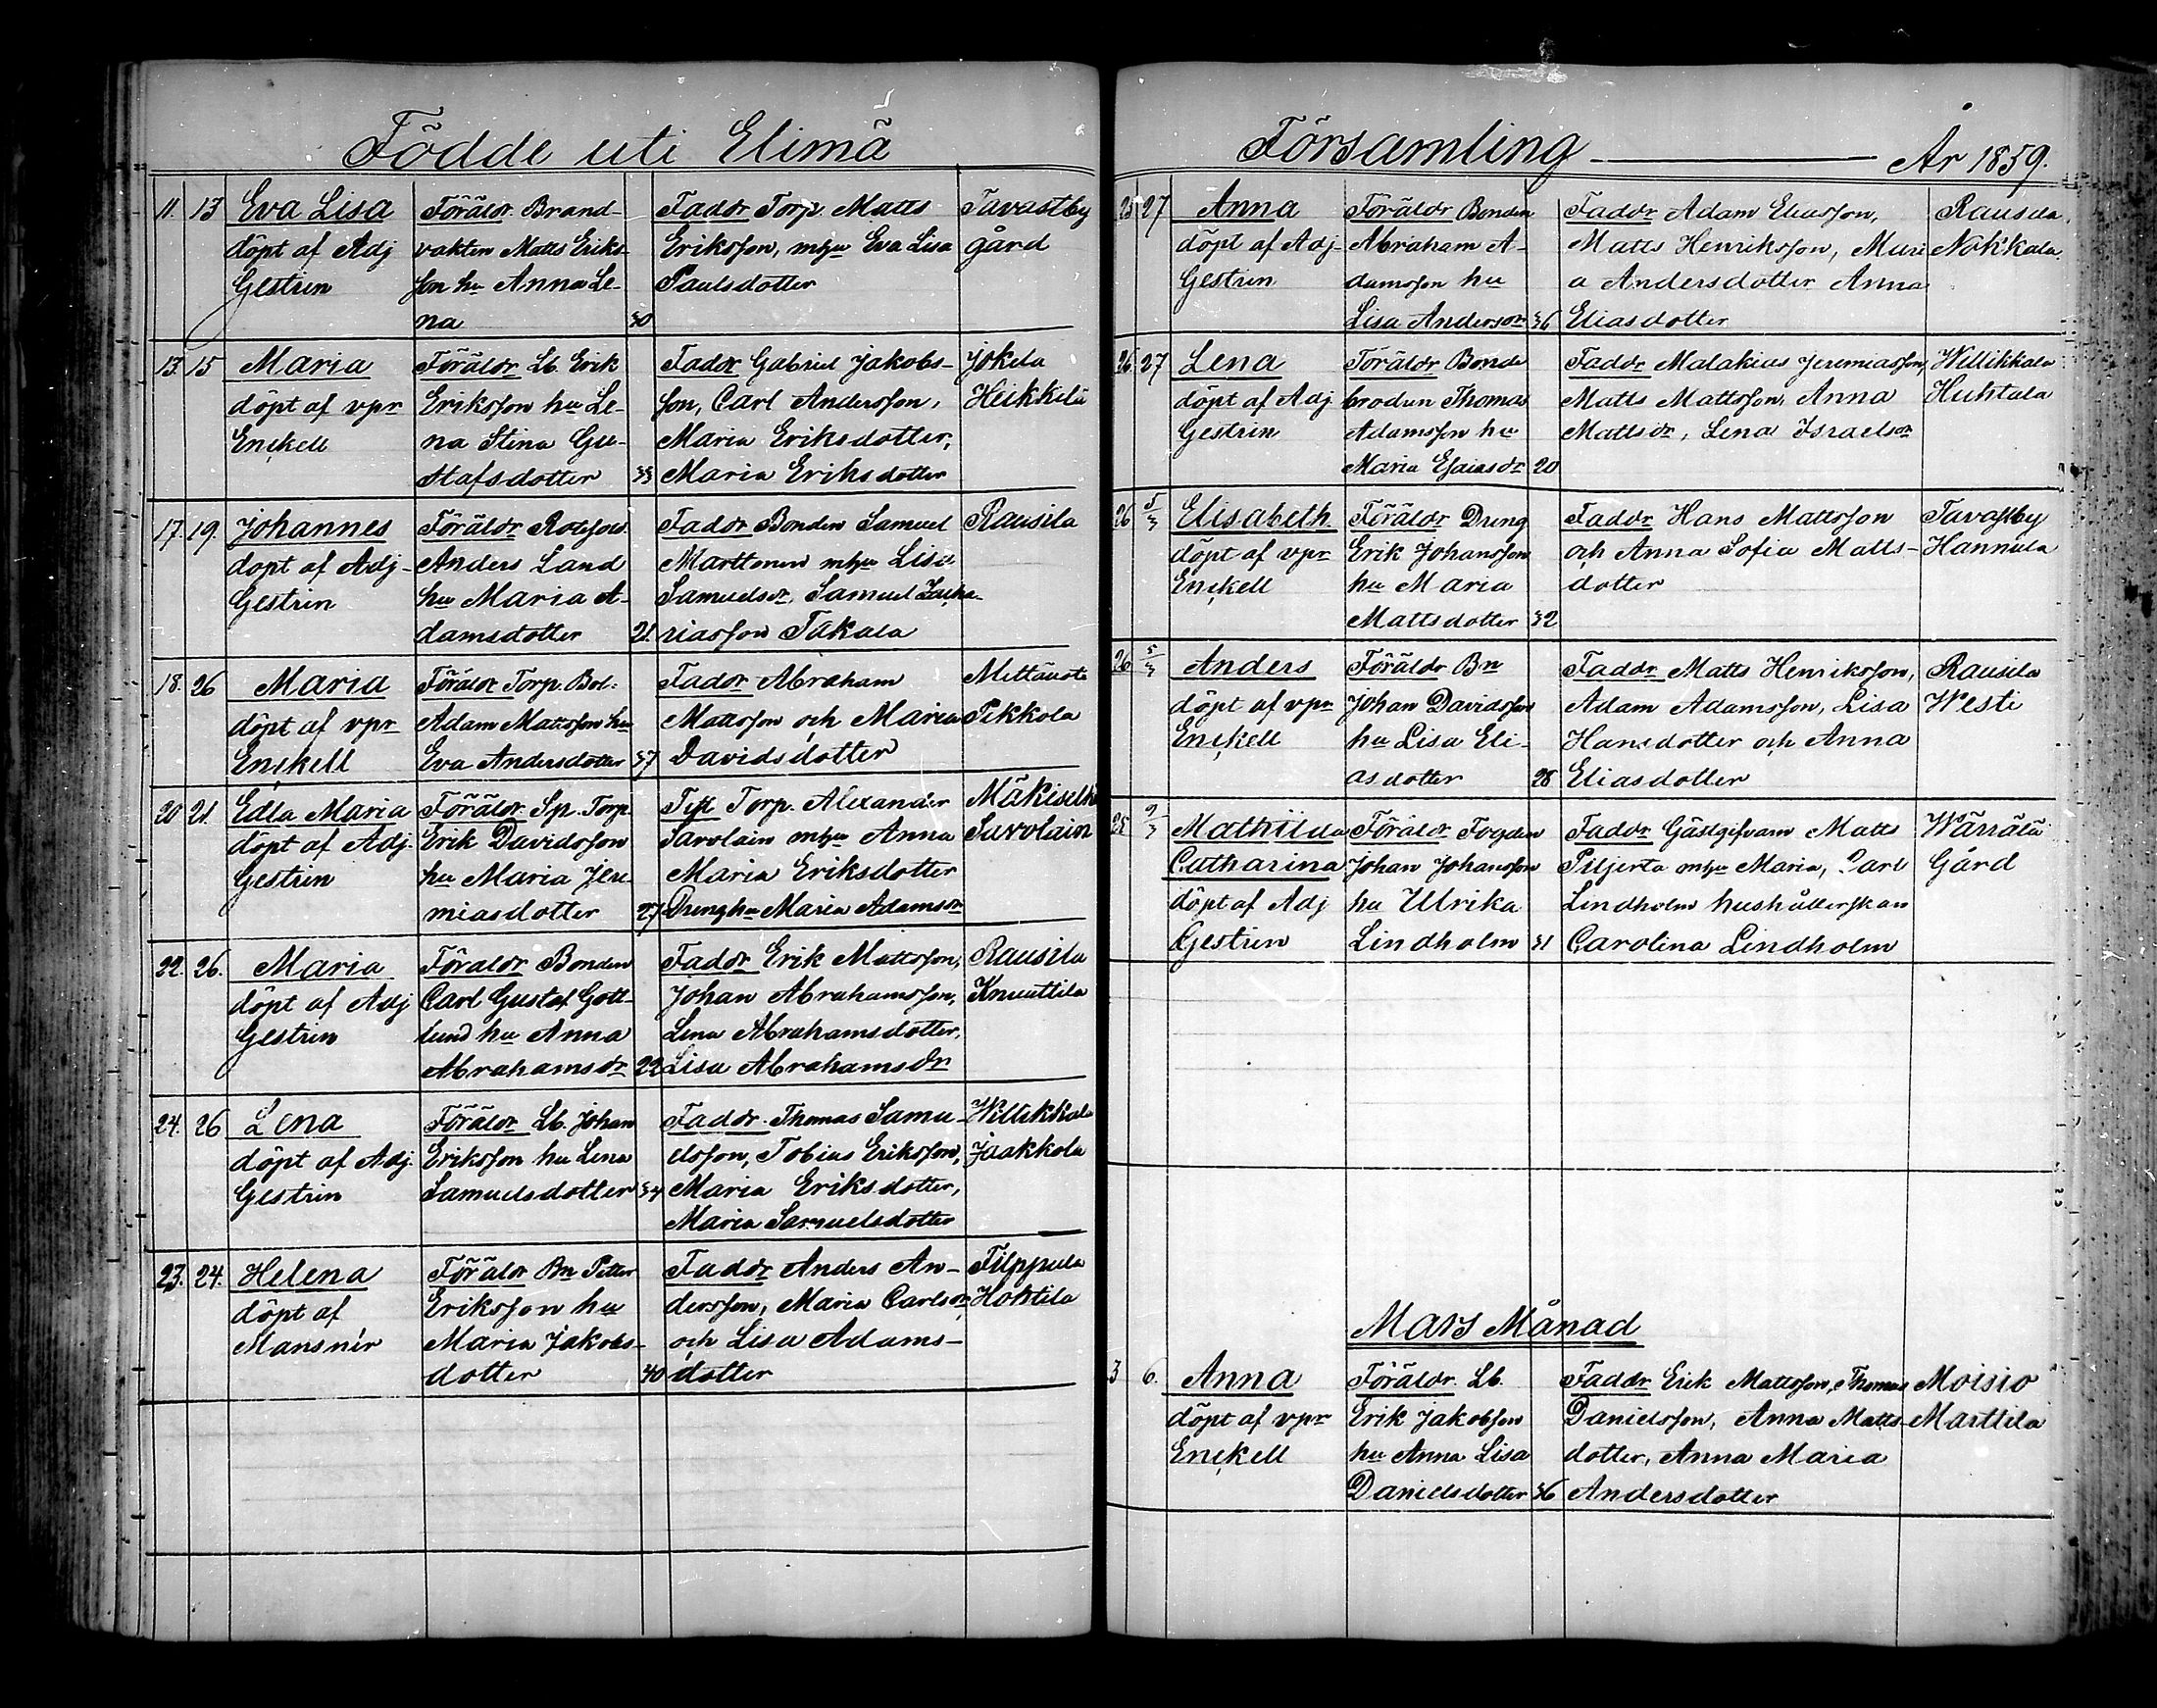 Födde uti Elimä
11. 13 Eva Lisa Föräldr. Brand- Faddr Torp. Matts Tavastby
döpt af Adj vakten Matts Eriks- Eriksson, m hu Eva Lisa gård
Gestrin son hu Anna Le- Paulsdotter
na 30
13. 15 Maria Föräldr Lb. Erik Faddr Gabriel Jakobs- Jokela
döpt af vpr Eriksson hu Le- son, Carl Andersson, Heikkilä
Enckell na Stina Gu- Maria Eriksdotter,
stafsdotter 33 Maria Eriksdotter
17. 19. Johannes Föräldr Rotesold. Faddr Bonden Samuel Rausila
döpt af Adj- Anders Land Marttonen m hu Lisa
Gestrin hu Maria A- Samuelsdr, Samuel Zacha-
damsdotter 21. riasson Takala
18. 26 Maria Föräldr Torp. Bol. Faddr Abraham Mettäuste
döpt af vpr Adam Mattsson hu Mattsson och Maria Pikkola
Enckell Eva Andersdotter 37 Davidsdotter
20 21. Edla Maria Föräldr. Sp. Torp. Test Torp. Alexander
döpt af Adj. Erik Davidsson Savolain m hu Anna Savolain
Gestrin hu Maria Jere- Maria Eriksdotter
miasdotter 27 Dreng hu Maria Adamsdr
22. 26. Maria Föräldr Bonden Faddr Erik Mattsson, Rausila
döpt af Adj Carl Gustaf Gott- Johan Abrahamsson, Knuuttila
Gestrin lund hu Anna Lena Abrahamsdotter,
Abrahamsdr 22 Lisa Abrahamsdr
24. 26 Lena Föräldr Lb. Johan Faddr. Thomas Samu- Willikkala
döpt af Adj. Eriksson hu Lena elsson, Tobias Eriksson, Jaakkola
Gestrin Samuelsdotter 34 Maria Eriksdotter,
Maria Samuelsdotter
23. 24. Helena Föräldr Bn Petter Faddr Anders An- Filppula
döpt af Eriksson hu dersson, Maria Carlsdr, Hokkila
Mansnér Maria Jakobs- och Lisa Adams-
dotter 40 dotter
Församling År 1859.
25 27 Anna Föräldr Bonden Faddr Adam Eliasson, Rausila,
döpt af Adj- Abraham A- Matts Henriksson, Mari Nokkala
Gestrin damsson hu a Andersdotter Anna
Lisa Andersdr 36 Eliasdotter
26. 27 Lena Föräldr Bonde Faddr Malakias Jeremiasson, Willikkala
döpt af Adj brodren Thomas Matts Mattsson, Anna Huhtala
Gestrin Adamsson hu Mattsdr, Lena Israelsdr
Maria Esaiasdr 20
26 5/3 Elisabeth. Föräldr Dreng Faddr Hans Mattsson Tavastby
döpt af vpr Erik Johansson och Anna Sofia Matts- Hannula
Enckell hu Maria dotter
Mattsdotter 32
26 5/3 Anders Föräldr Bn Faddr Matts Henriksson, Rausila
döpt af vpr Johan Davidsson Adam Adamsson, Lisa Westi
Enckell hu Lisa Eli- Hansdotter och Anna
asdotter 28 Eliasdotter
25 9/3 Mathilda Föräldr Fogden Faddr Gästgifvarn Matts Wärrälä
Catharina Johan Johansson Piljerta m hu Maria, Carl Gård
döpt af Adj hu Ulrika Lindholm hushållerskan
Gestrin Lindholm 31 Carolina Lindholm
Mars Månad
3 6. Anna Föräldr. Lb. Faddr Erik Mattsson, Thomas Moisio
döpt af vpr Erik Jakobsson Danielsson, Anna Matts- Marttila
Enckell hu Anna Lisa dotter, Anna Maria
Danielsdotter 36 Andersdotter